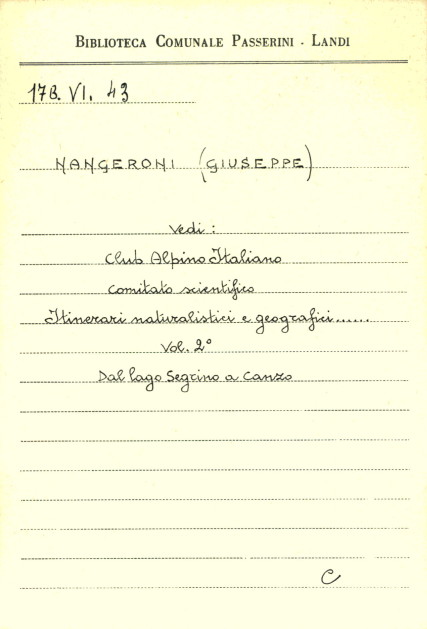 BIBLIOTECA COMUNALE PASSERINI - LANDI
17B. VI. 43
NANGERONI (GIUSEPPE)
Vedi:
Club Alpino Italiano
Comitato scientifico
Itinerari naturalistici e geografici......
Vol. 2°
Dal lago Segrino a Canzo
C